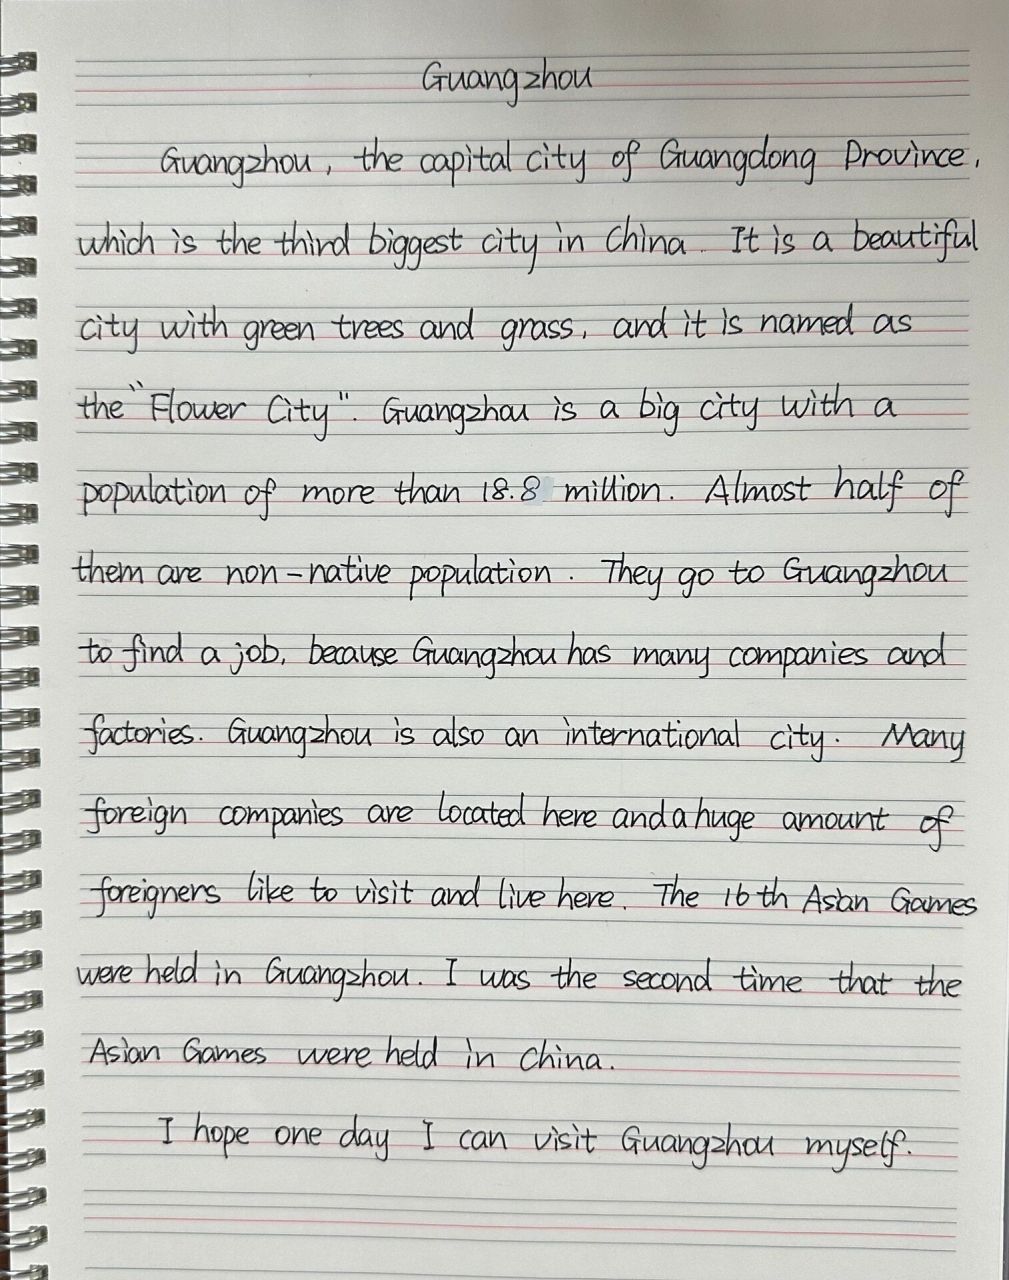 Guangzhou
Guangzhou, the capital city of Guangdong Province,
which is the third biggest city in China. It is a beautiful
city with green trees and grass, and it is named as
the "Flower City". Guangzhou is a big city with a
population of more than 18.8 million. Almost half of
them are non-native population. They go to Guangzhou
to find a job, because Guangzhou has many companies and
factories. Guangzhou is also an international city. Many
foreign companies are located here and a huge amount of
foreigners like to visit and live here. The 16th Asian Games
were held in Guangzhou. I was the second time that the
Asian Games were held in China.
I hope one day I can visit Guangzhou myself.